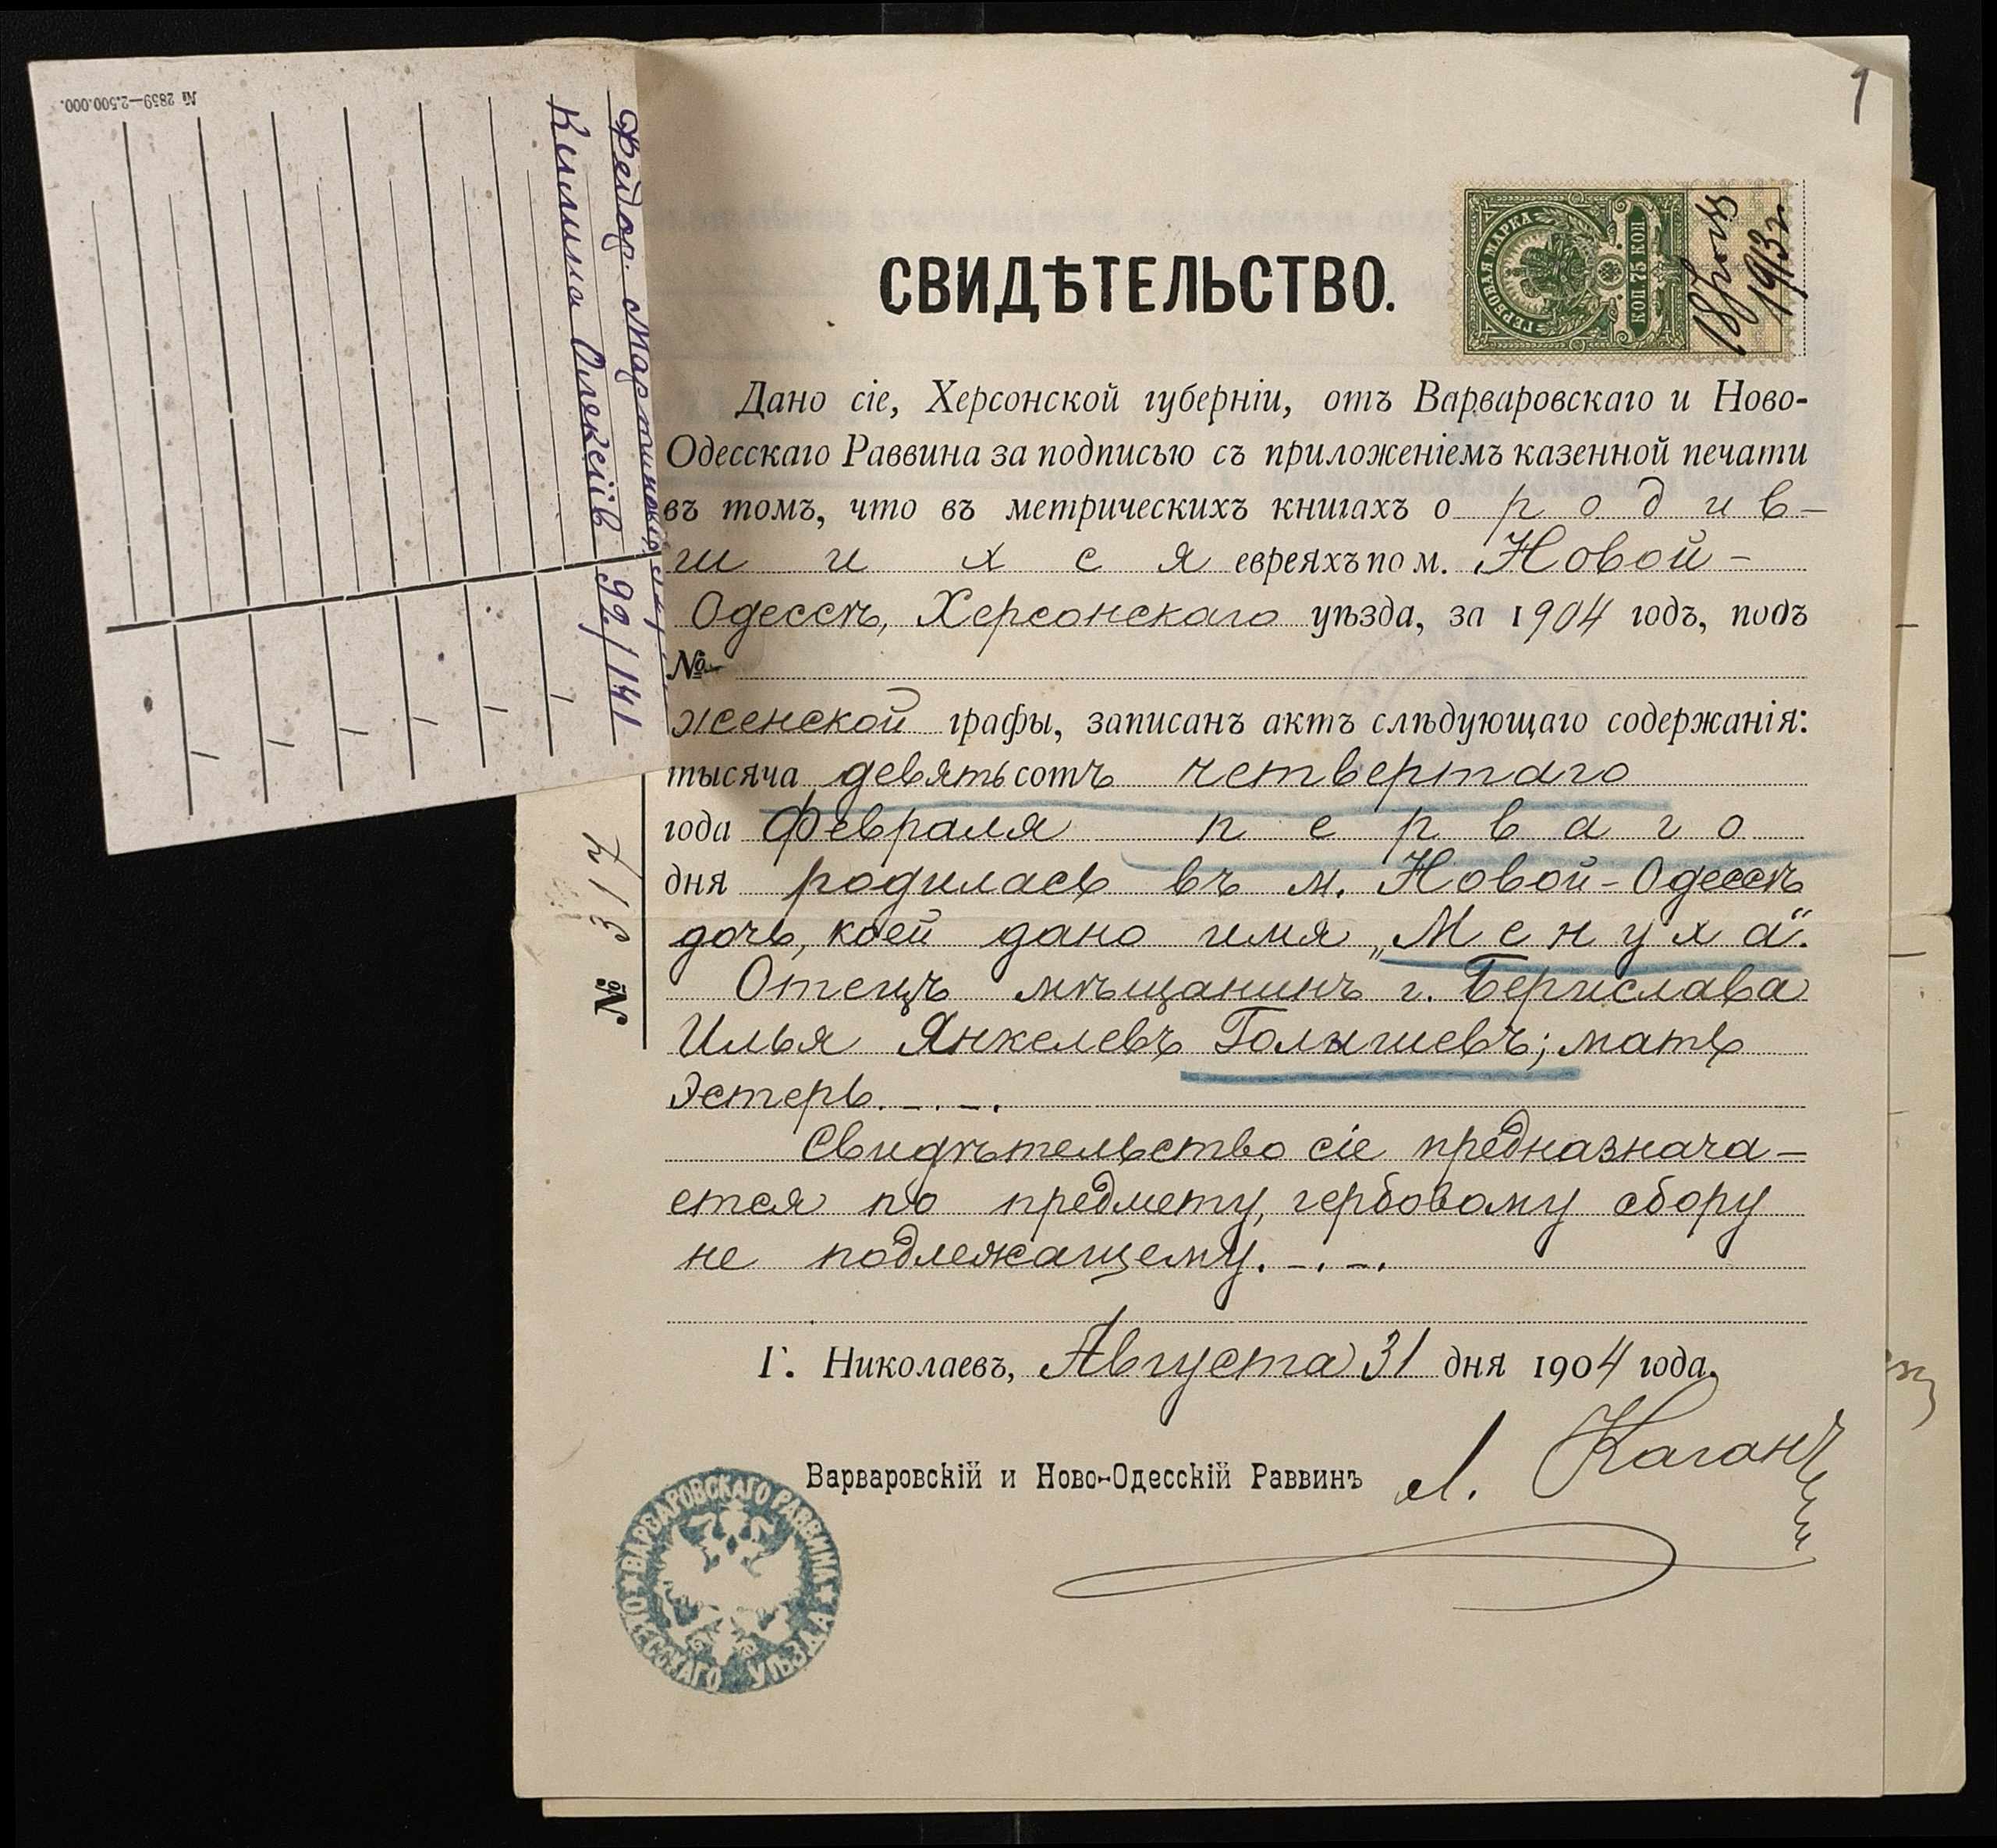 1
СВИДѢТЕЛЬСТВО.
ГЕРБОВАЯ МАРКА
КОП. 75 КОП
1913 г
Дано сіе, Херсонской губерніи, отъ Варваровскаго и Ново-
Одесскаго Раввина за подписью съ приложеніемъ казенной печати
въ томъ, что въ метрическихъ книгахъ о родив-
шихся евреяхъ по м. Новой-
Одессѣ, Херсонскаго уѣзда, за 1904 годъ, подъ
№
женской графы, записанъ актъ слѣдующаго содержанія:
тысяча девятьсотъ четвертаго
года Февраля перваго
дня родилась въ м. Новой-Одессѣ
дочь, коей дано имя „Менуха“.
Отецъ мѣщанинъ г. Берислава
Илья Янкелевъ Голышевъ; мать
Эстерь.
Свидѣтельство сіе предназнача-
ется по предмету, гербовому сбору
не подлежащему.
Г. Николаевъ, Августа 31 дня 1904 года.
Варваровскій и Ново-Одесскій Раввинъ Л. Каганъ
ВАРВАРОВСКАГО РАВВИНА ОДЕССКАГО УѢЗДА
№
№ 2839—2.500.000.
Федор.
Килина Олексіїв 92/141